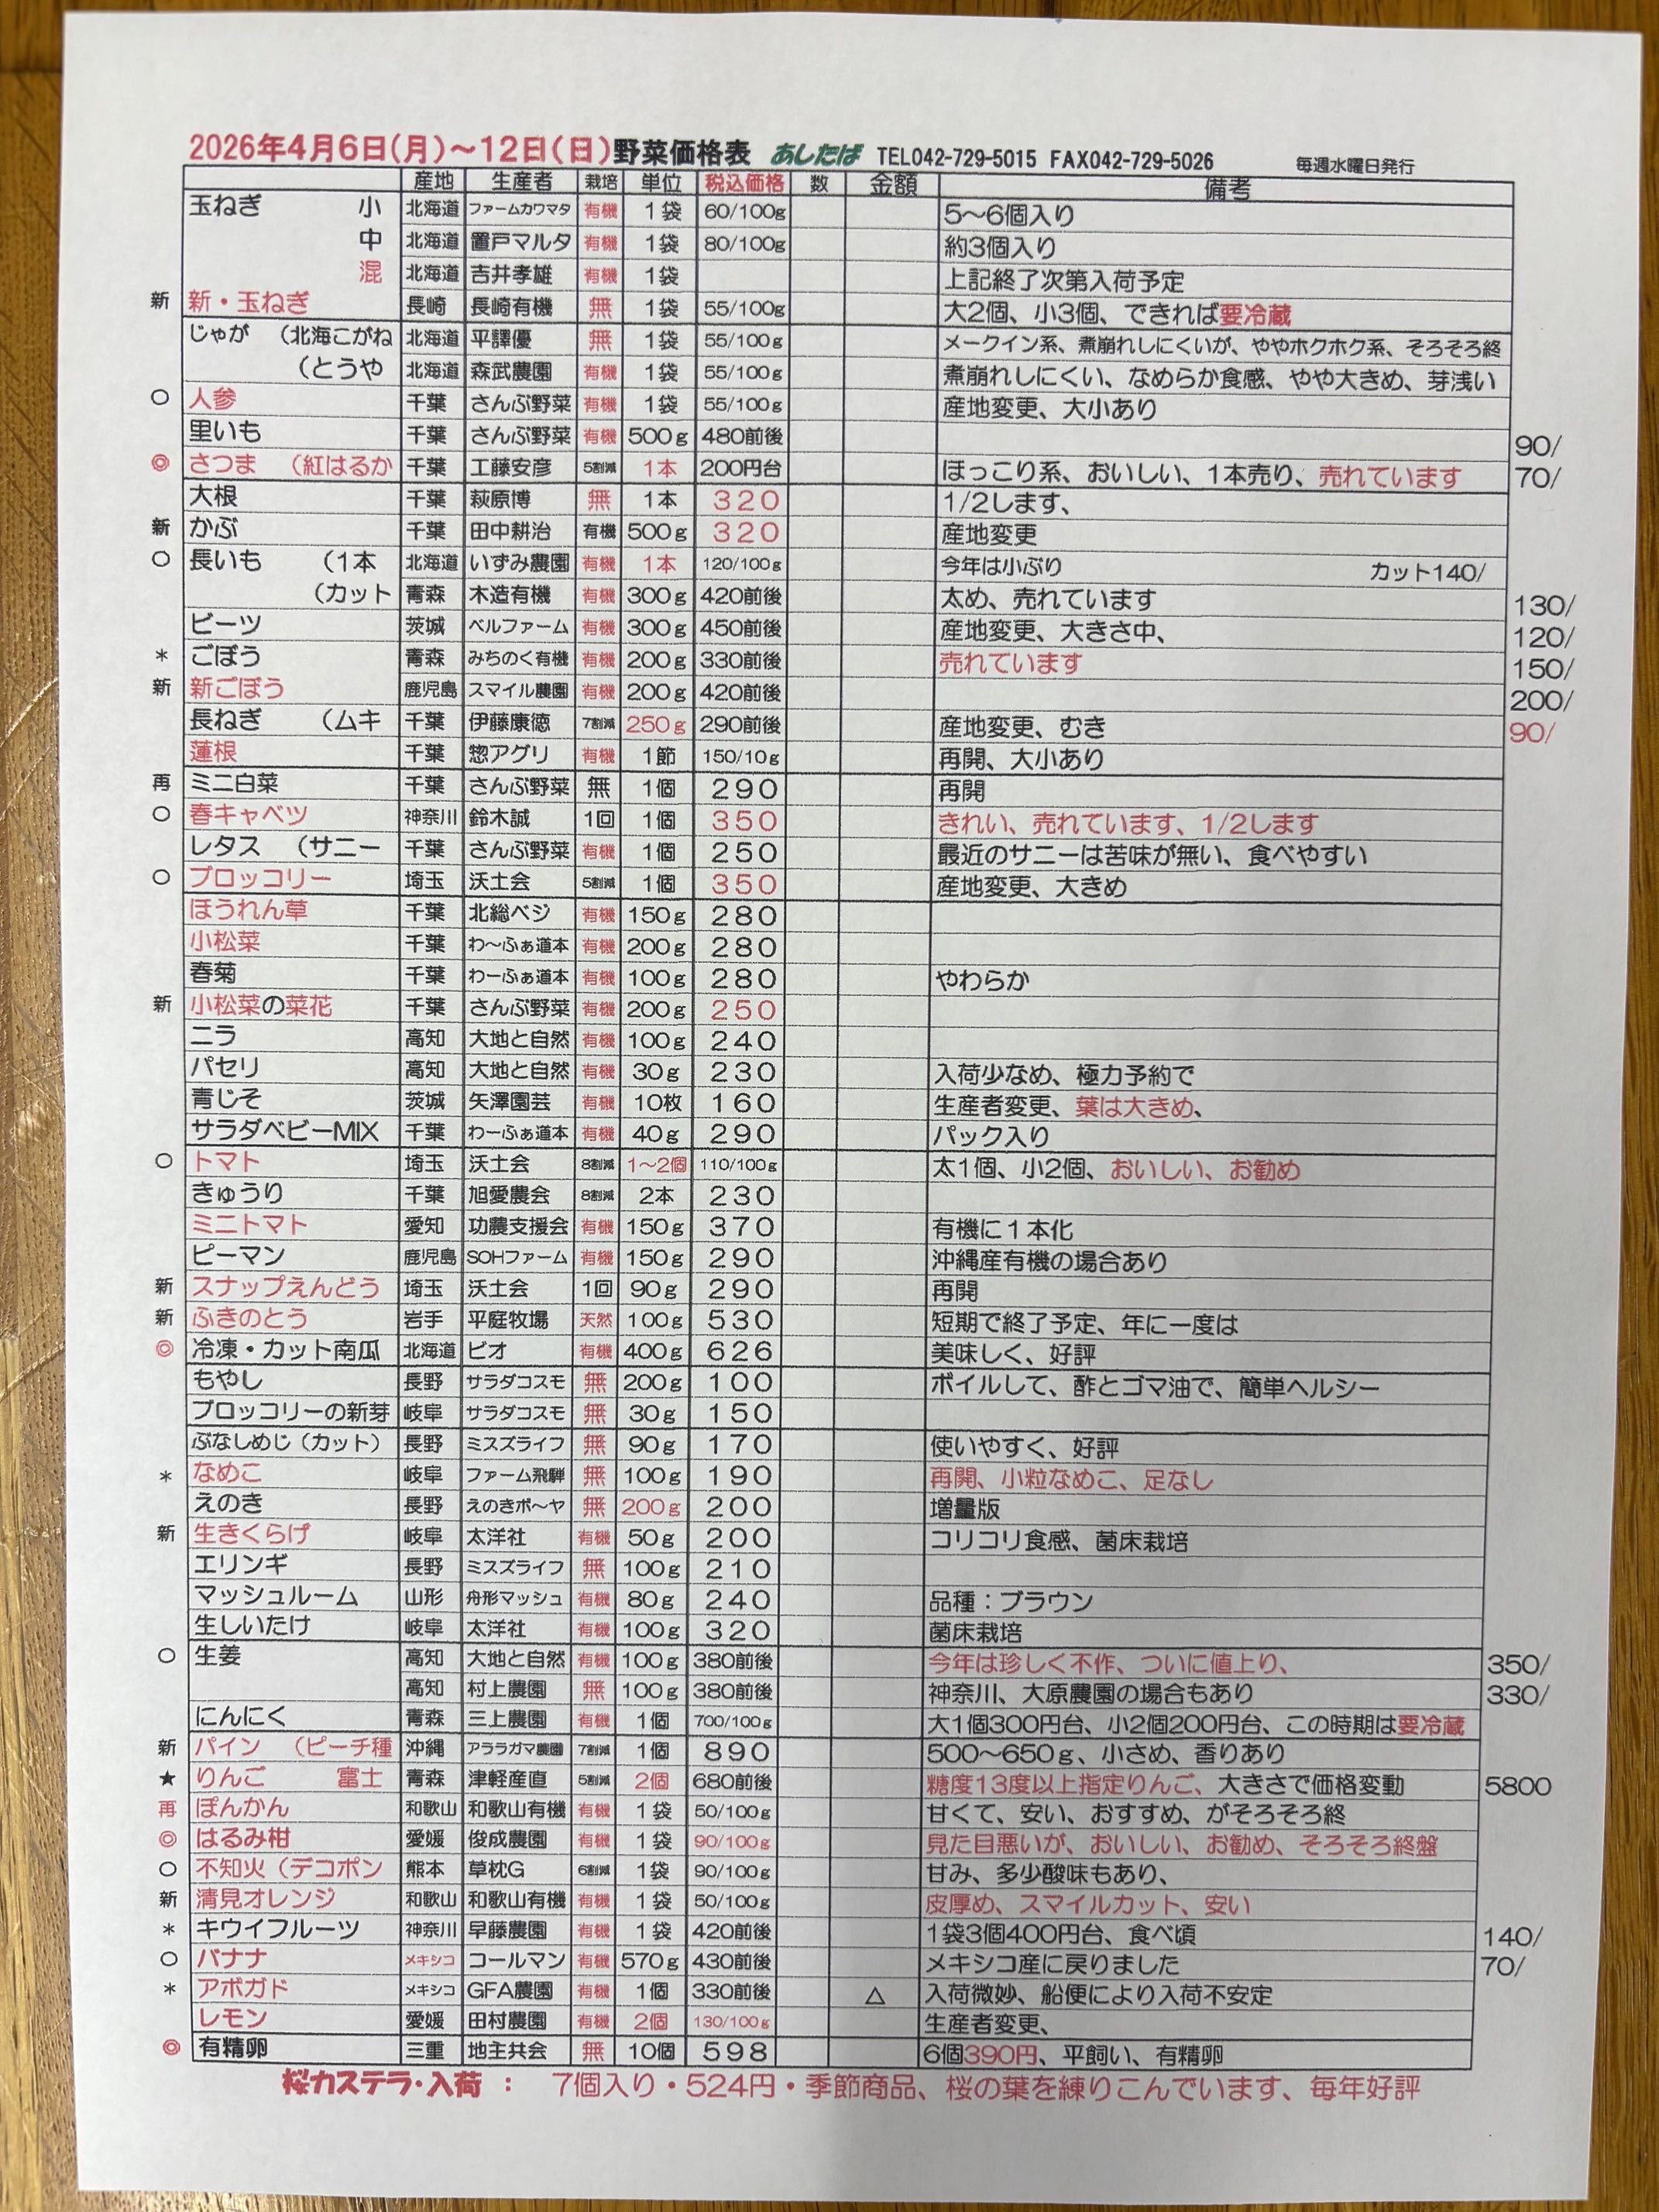 2026年4月6日(月)～12日(日)野菜価格表 あしたば TEL042-729-5015 FAX042-729-5026 毎週水曜日発行
産地 生産者 栽培 単位 税込価格 数 金額 備考
玉ねぎ 小 北海道 ファームカワマタ 有機 1袋 60/100g 5～6個入り
中 北海道 置戸マルタ 有機 1袋 80/100g 約3個入り
混 北海道 吉井孝雄 有機 1袋 上記終了次第入荷予定
新 新・玉ねぎ 長崎 長崎有機 無 1袋 55/100g 大2個、小3個、できれば要冷蔵
じゃが （北海こがね 北海道 平譯優 無 1袋 55/100g メークイン系、煮崩れしにくいが、ややホクホク系、そろそろ終
（とうや 北海道 森武農園 有機 1袋 55/100g 煮崩れしにくい、なめらか食感、やや大きめ、芽浅い
○ 人参 千葉 さんぶ野菜 有機 1袋 55/100g 産地変更、大小あり
里いも 千葉 さんぶ野菜 有機 500g 480前後 90/
◎ さつま （紅はるか 千葉 工藤安彦 5割減 1本 200円台 ほっこり系、おいしい、1本売り、売れています 70/
大根 千葉 萩原博 無 1本 320 1/2します、
新 かぶ 千葉 田中耕治 有機 500g 320 産地変更
○ 長いも （1本 北海道 いずみ農園 有機 1本 120/100g 今年は小ぶり カット140/
（カット 青森 木造有機 有機 300g 420前後 太め、売れています 130/
ビーツ 茨城 ベルファーム 有機 300g 450前後 産地変更、大きさ中、 120/
＊ ごぼう 青森 みちのく有機 有機 200g 330前後 売れています 150/
新 新ごぼう 鹿児島 スマイル農園 有機 200g 420前後 200/
長ねぎ （ムキ 千葉 伊藤康徳 7割減 250g 290前後 産地変更、むき 90/
蓮根 千葉 惣アグリ 有機 1節 150/10g 再開、大小あり
再 ミニ白菜 千葉 さんぶ野菜 無 1個 290 再開
○ 春キャベツ 神奈川 鈴木誠 1回 1個 350 きれい、売れています、1/2します
レタス （サニー 千葉 さんぶ野菜 有機 1個 250 最近のサニーは苦味が無い、食べやすい
○ ブロッコリー 埼玉 沃土会 5割減 1個 350 産地変更、大きめ
ほうれん草 千葉 北総ベジ 有機 150g 280
小松菜 千葉 わ～ふぁ道本 有機 200g 280
春菊 千葉 わーふぁ道本 有機 100g 280 やわらか
新 小松菜の菜花 千葉 さんぶ野菜 有機 200g 250
ニラ 高知 大地と自然 有機 100g 240
パセリ 高知 大地と自然 有機 30g 230 入荷少なめ、極力予約で
青じそ 茨城 矢澤園芸 有機 10枚 160 生産者変更、葉は大きめ、
サラダベビーMIX 千葉 わーふぁ道本 有機 40g 290 パック入り
○ トマト 埼玉 沃土会 8割減 1～2個 110/100g 太1個、小2個、おいしい、お勧め
きゅうり 千葉 旭愛農会 8割減 2本 230
ミニトマト 愛知 功農支援会 有機 150g 370 有機に1本化
ピーマン 鹿児島 SOHファーム 有機 150g 290 沖縄産有機の場合あり
新 スナップえんどう 埼玉 沃土会 1回 90g 290 再開
新 ふきのとう 岩手 平庭牧場 天然 100g 530 短期で終了予定、年に一度は
◎ 冷凍・カット南瓜 北海道 ビオ 有機 400g 626 美味しく、好評
もやし 長野 サラダコスモ 無 200g 100 ボイルして、酢とゴマ油で、簡単ヘルシー
ブロッコリーの新芽 岐阜 サラダコスモ 無 30g 150
ぶなしめじ（カット） 長野 ミスズライフ 無 90g 170 使いやすく、好評
＊ なめこ 岐阜 ファーム飛騨 無 100g 190 再開、小粒なめこ、足なし
えのき 長野 えのきボ～ヤ 無 200g 200 増量版
新 生きくらげ 岐阜 太洋社 有機 50g 200 コリコリ食感、菌床栽培
エリンギ 長野 ミスズライフ 無 100g 210
マッシュルーム 山形 舟形マッシュ 有機 80g 240 品種：ブラウン
生しいたけ 岐阜 太洋社 有機 100g 320 菌床栽培
○ 生姜 高知 大地と自然 有機 100g 380前後 今年は珍しく不作、ついに値上り、 350/
高知 村上農園 無 100g 380前後 神奈川、大原農園の場合もあり 330/
にんにく 青森 三上農園 有機 1個 700/100g 大1個300円台、小2個200円台、この時期は要冷蔵
新 パイン （ピーチ種 沖縄 アララガマ農園 7割減 1個 890 500～650g、小さめ、香りあり
★ りんご 富士 青森 津軽産直 5割減 2個 680前後 糖度13度以上指定りんご、大きさで価格変動 5800
再 ぽんかん 和歌山 和歌山有機 有機 1袋 50/100g 甘くて、安い、おすすめ、がそろそろ終
◎ はるみ柑 愛媛 俊成農園 有機 1袋 90/100g 見た目悪いが、おいしい、お勧め、そろそろ終盤
○ 不知火（デコポン 熊本 草枕G 6割減 1袋 90/100g 甘み、多少酸味もあり、
新 清見オレンジ 和歌山 和歌山有機 有機 1袋 50/100g 皮厚め、スマイルカット、安い
＊ キウイフルーツ 神奈川 早藤農園 有機 1袋 420前後 1袋3個400円台、食べ頃 140/
○ バナナ メキシコ コールマン 有機 570g 430前後 メキシコ産に戻りました 70/
＊ アボガド メキシコ GFA農園 有機 1個 330前後 △ 入荷微妙、船便により入荷不安定
レモン 愛媛 田村農園 有機 2個 130/100g 生産者変更、
◎ 有精卵 三重 地主共会 無 10個 598 6個390円、平飼い、有精卵
桜カステラ・入荷 ： 7個入り・524円・季節商品、桜の葉を練りこんでいます、毎年好評